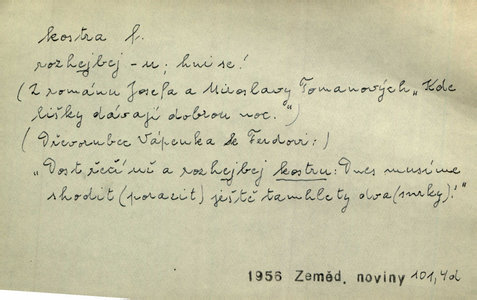 kostra f.
rozhejbej -u; hni se!
(Z románu Josefa a Miroslavy Tomanových „Kde
lišky dávají dobrou noc.")
(Dřevorubec Vápenka k Ferdovi:)
„Dost řečí už a rozhejbej kostru: Dnes musíme
shodit (porazit) ještě tamhlety dva (smrky)!"
1956 Zeměd. noviny 101,4d